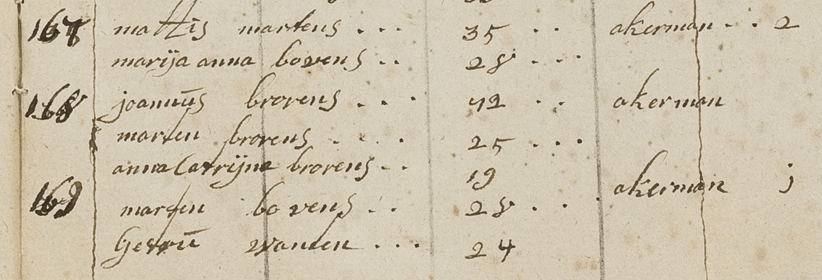 167 mattis martens . . . 35 . . akerman . . 2
marija anna bovens . . 28 . . .
168 joannūs brorens . . . 42 . . akerman
marten brorens . . . 25 . . .
anna Catrijne brorens . . 19
169 marten bovens . . 28 . . . akerman j
. . . 24